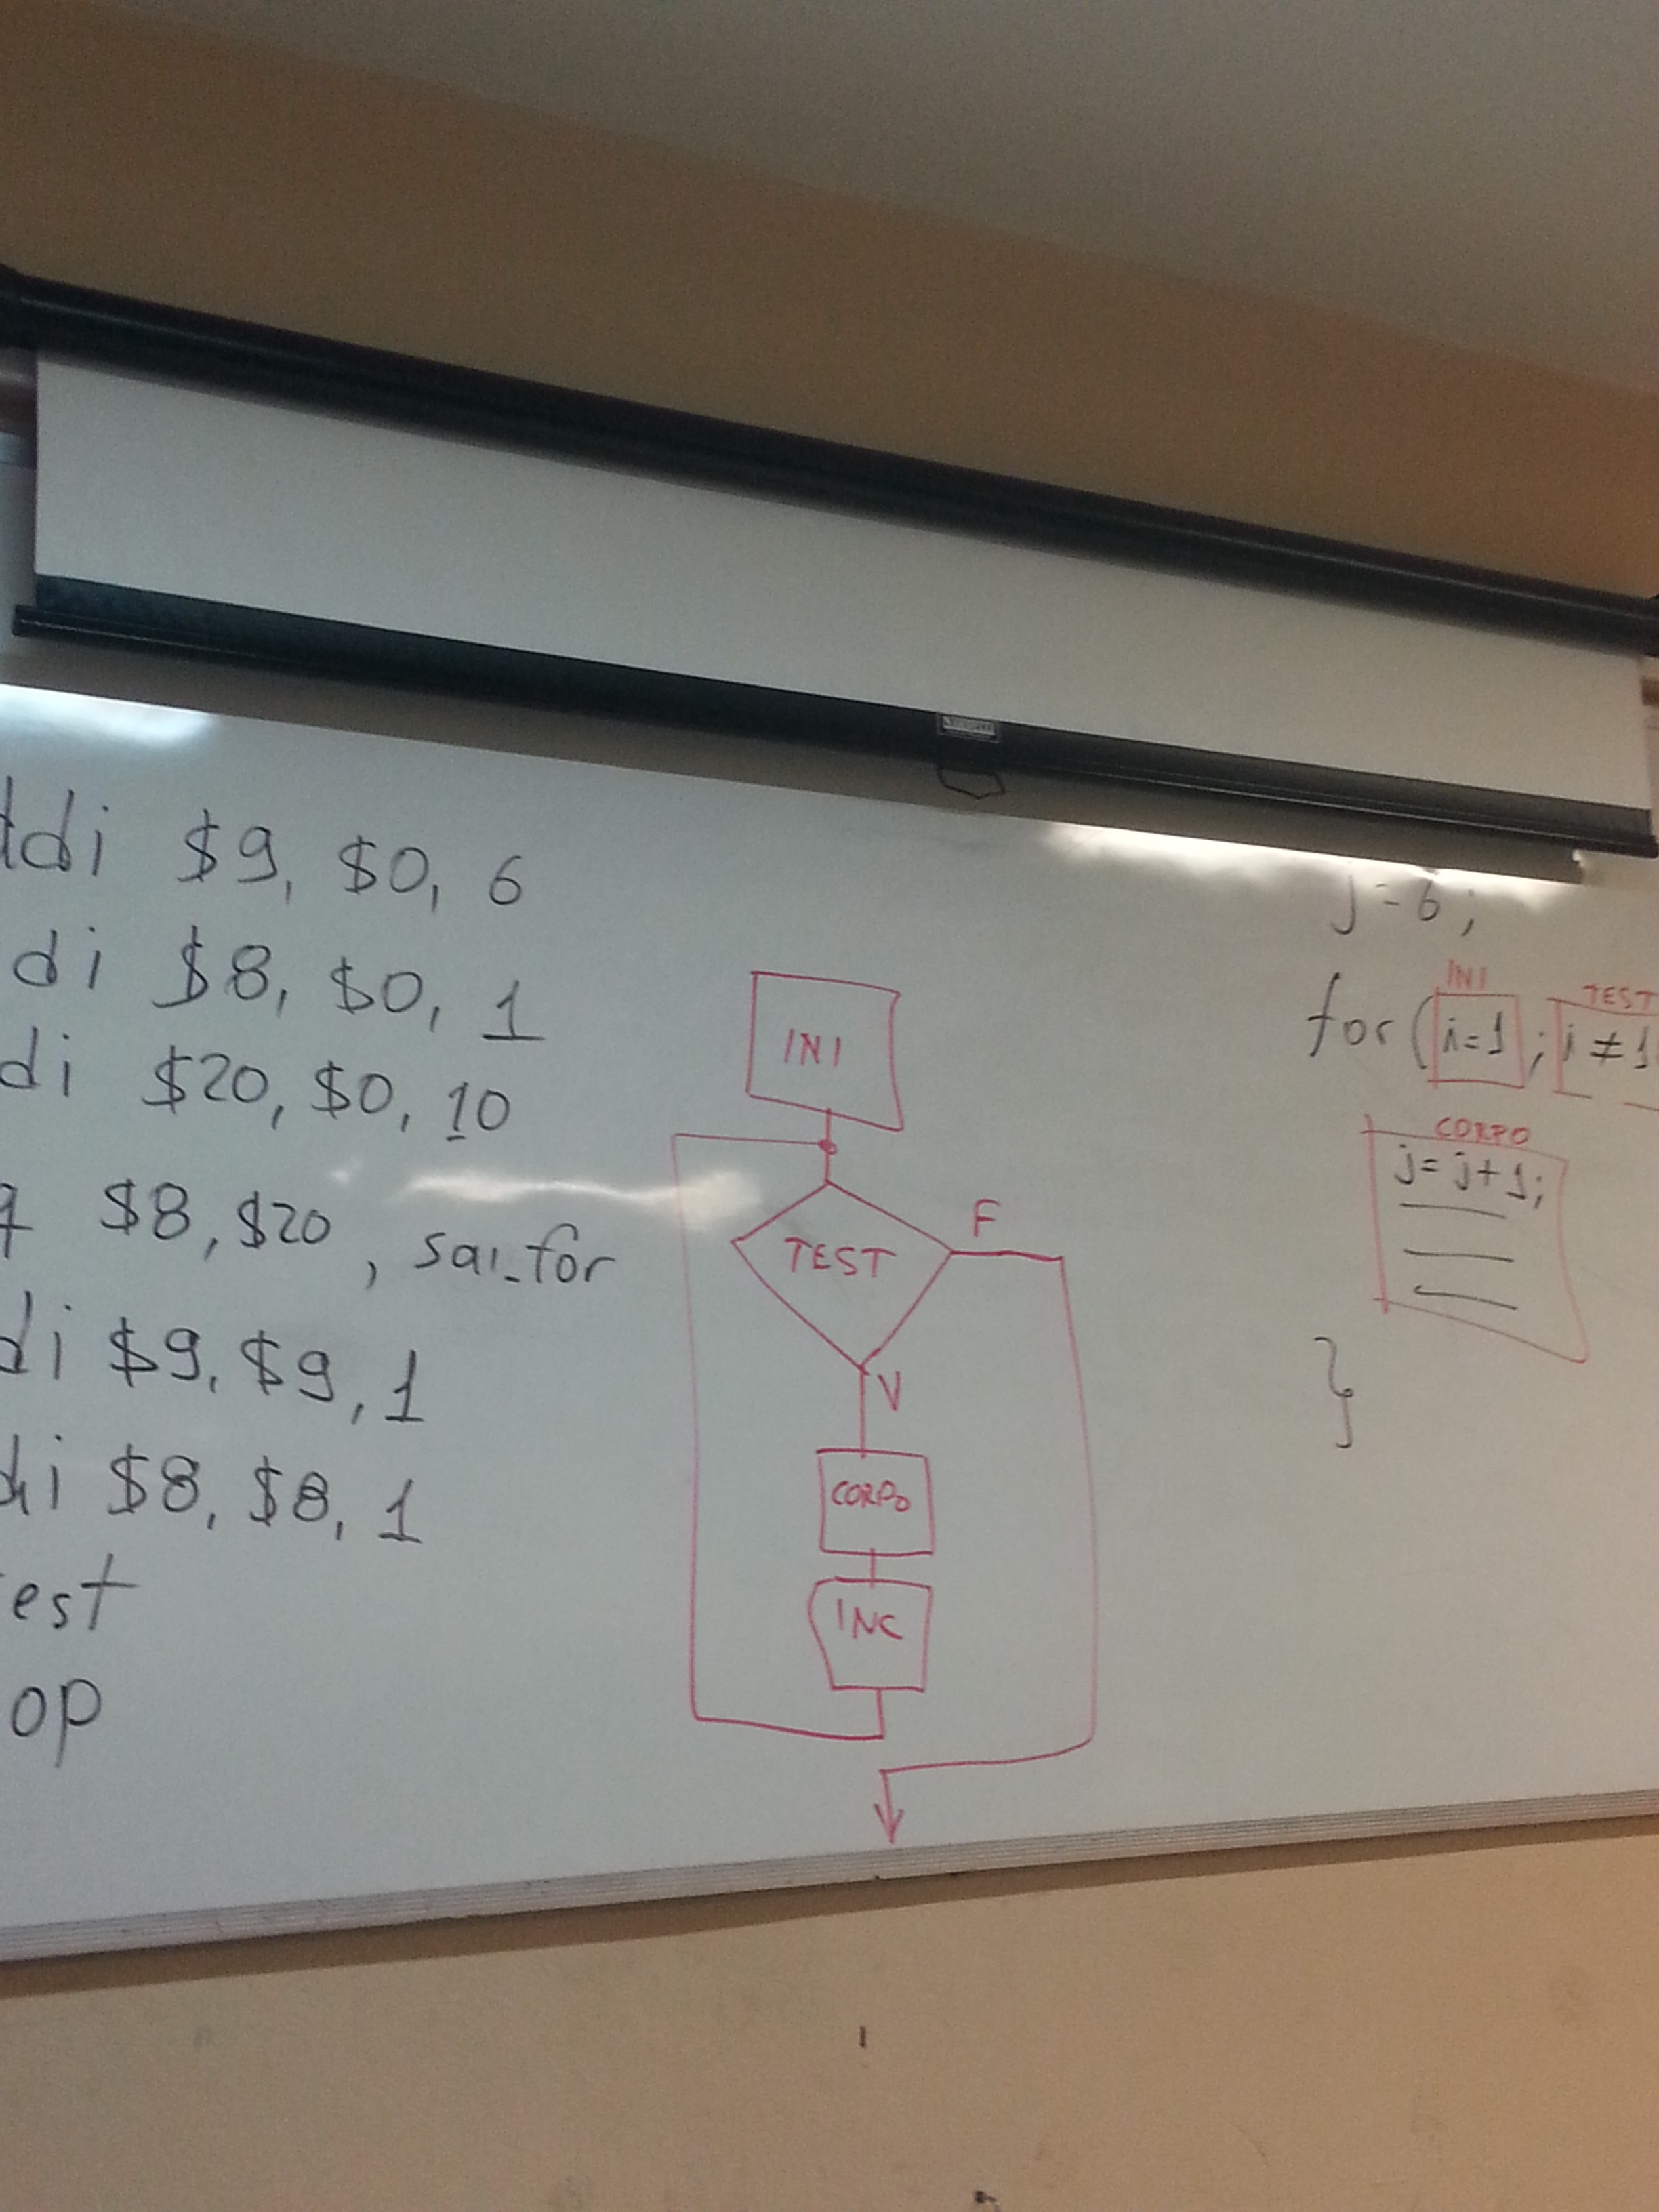 ddi $9, $0, 6
di $8, $0, 1
di $20, $0, 10
$8, $20, sai_for
di $9, $9, 1
di $8, $8, 1
est
op
INI
TEST
F
V
CORPO
INC
j=6;
INI TEST
for (i=1; i≠1
CORPO
j=j+1;
}